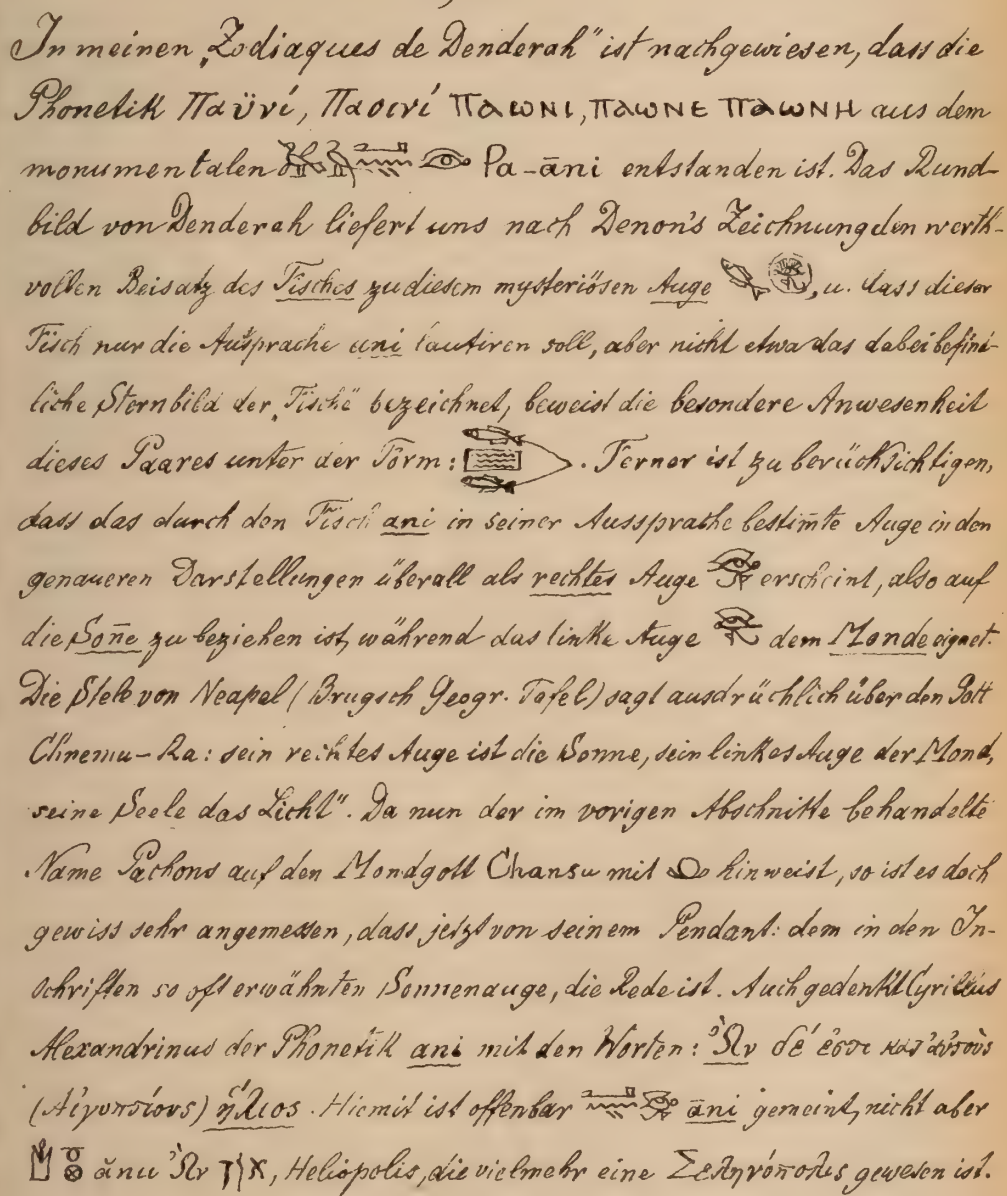 In meinen „Zodiaques de Denderah" ist nachgewiesen, dass die
Phonetik Παϋνί, Παοινί ⲠⲀⲰⲚⲒ, ⲠⲀⲰⲚⲈ ⲠⲀⲰⲚⲎ aus dem
monumentalen Pa-āni entstanden ist. Das Rund-
bild von Denderah liefert uns nach Denon's Zeichnung den werth-
vollen Beisatz des Fisches zu diesem mysteriösen Auge , u. dass dieser
Fisch nur die Aussprache ani lautiren soll, aber nicht etwa das dabei befind-
liche Sternbild der „Fische" bezeichnet, beweist die besondere Anwesenheit
dieses Paares unter der Form: . Ferner ist zu berücksichtigen,
dass das durch den Fisch ani in seiner Aussprache bestim̄te Auge in den
genaueren Darstellungen überall als rechtes Auge erscheint, also auf
die Son̄e zu beziehen ist, während das linke Auge dem Monde eignet.
Die Stele von Neapel (Brugsch Geogr. Tafel) sagt ausdrücklich über den Gott
Chnemu-Ra: sein rechtes Auge ist die Sonne, sein linkes Auge der Mond,
seine Seele das Licht". Da nun der im vorigen Abschnitte behandelte
Name Pachons auf den Mondgott Chansu mit hinweist, so ist es doch
gewiss sehr angemessen, dass jetzt von seinem Pendant: dem in den In-
schriften so oft erwähnten Sonnenauge, die Rede ist. Auch gedenkt Cyrillus
Alexandrinus der Phonetik ani mit den Worten: Ὢν δέ ἐστι κατ' αὐτοὺς
(Αἰγυπτίους) ἥλιος. Hiemit ist offenbar āni gemeint, nicht aber
ănu Ὢν , Heliopolis, die vielmehr eine Σεληνόπολις gewesen ist.